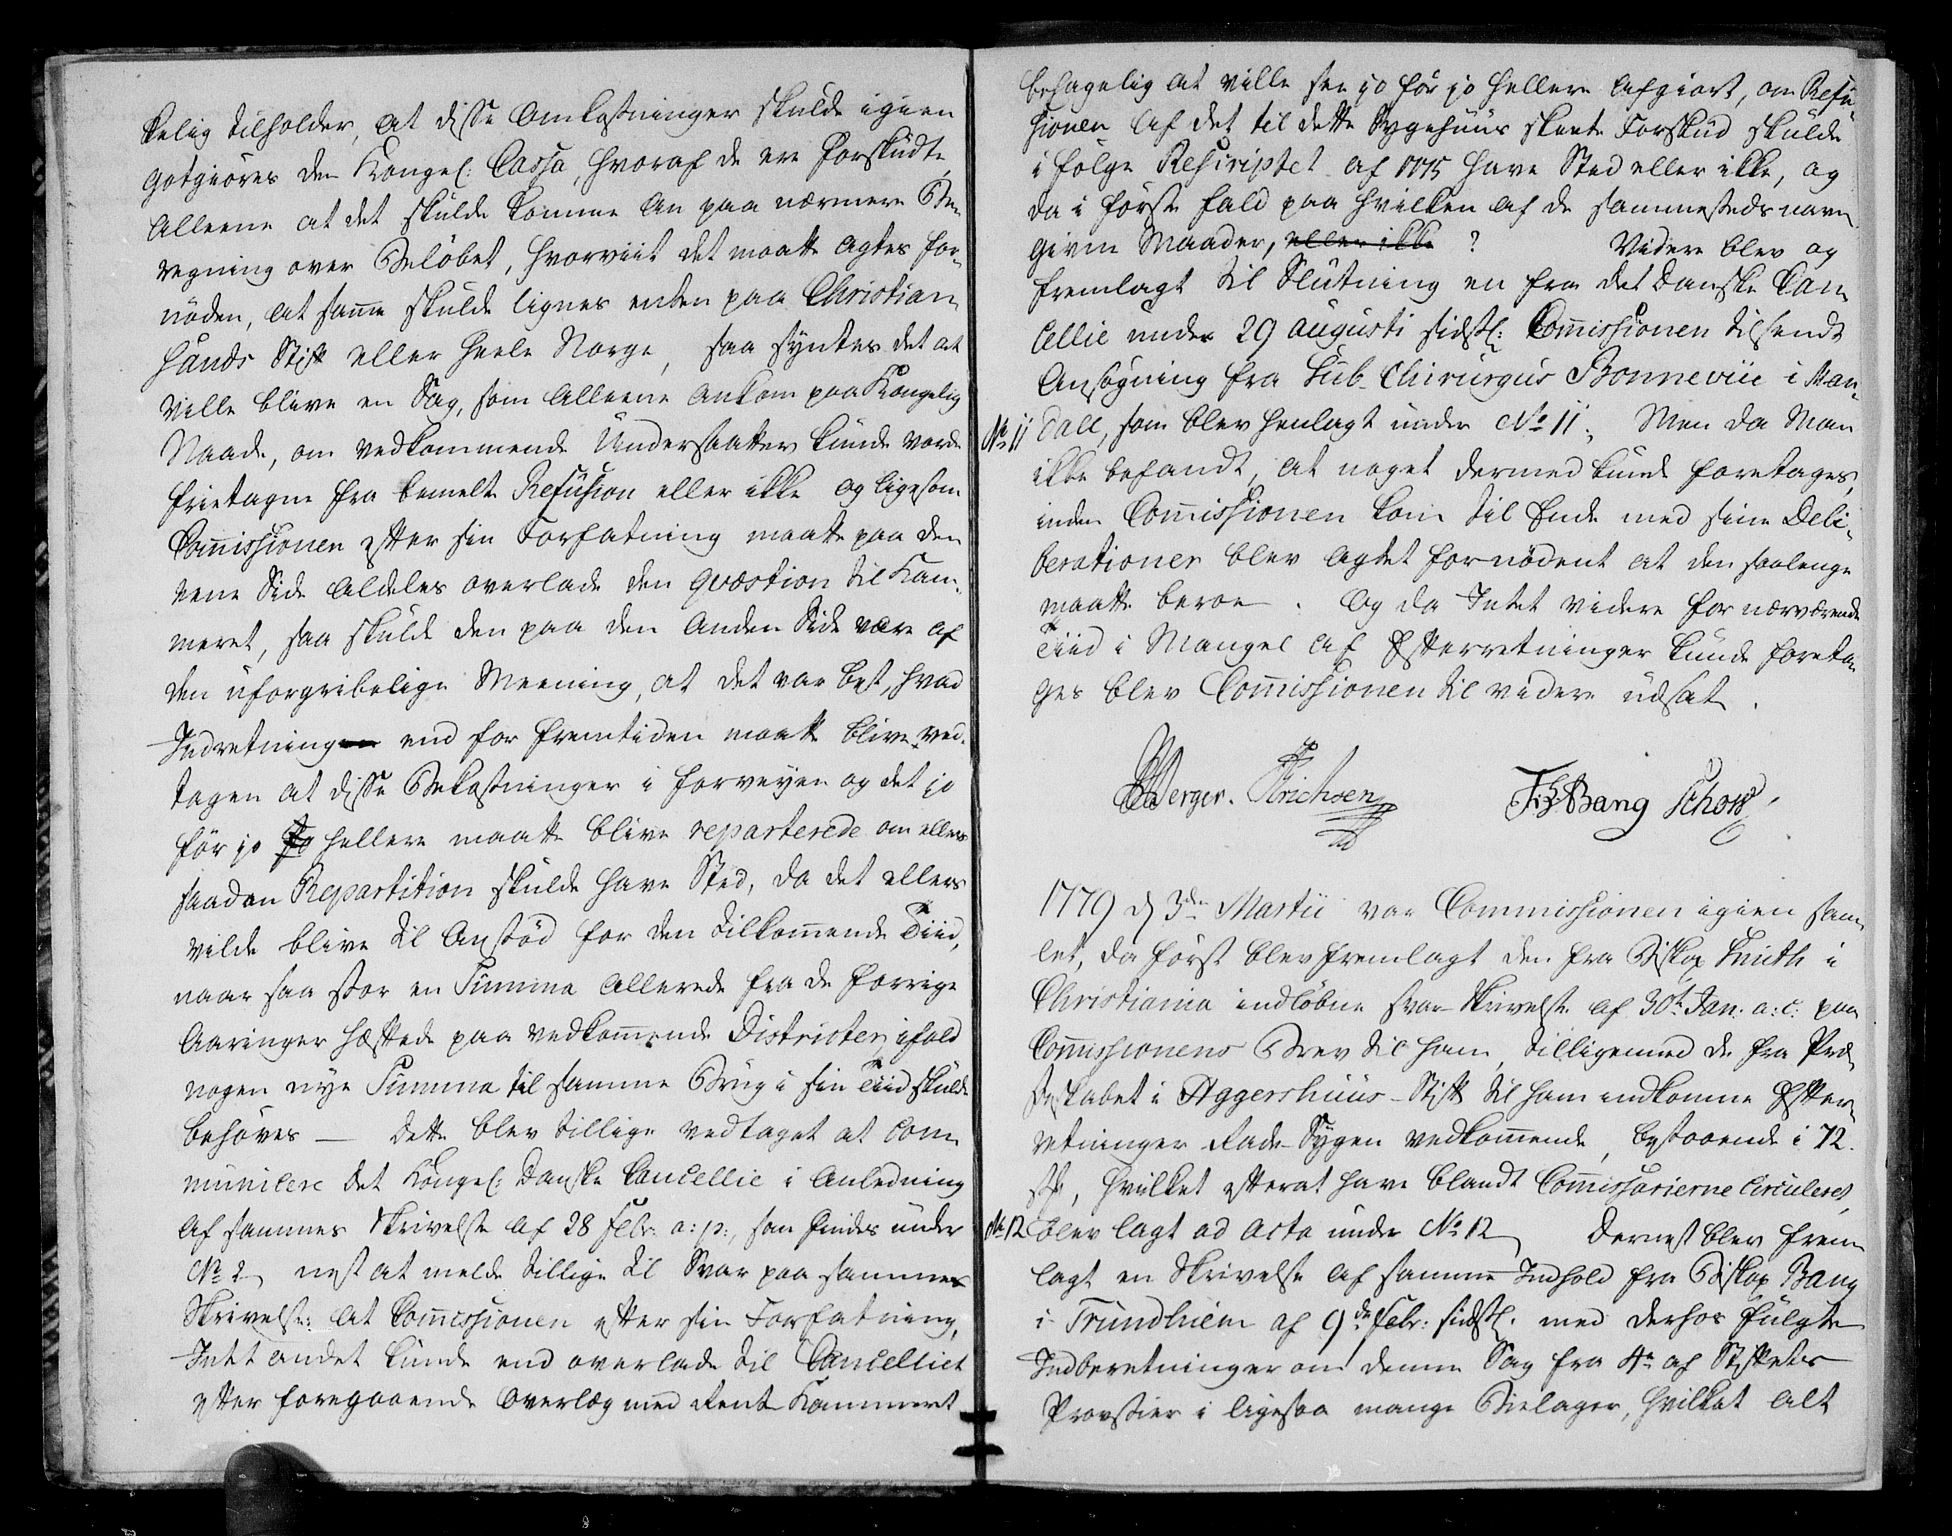 kelig tilholder, at disse Omkostninger skulde igien
godgiöres den Kongel: Cassa, hvoraf de ere forskudte,
alleene at det skulde komme an paa nærmere Be-
regning over Belöbet, hvorviit det maatte agtes for-
nöden, at samme skulde lignes enten paa Christian-
sands Stift eller heele Norge, saa syntes det at
ville blive en Sag, som alleene ankom paa Kongelig
Naade, om vedkommende Undersaatter kunde vorde
frietagne fra bemelte Refusion eller ikke og ligesom
Commissionen efter sin Forfatning maatte paa den
eene Side aldeles overlade den Qvæstion til Kam-
meret, saa skulde den paa den anden Side være af
den uforgribelige Meening, at det var best, hvad
Indretning end for fremtiden maatte blive ved-
tagen at disse Bekostninger i forveyen og det jo
för jo hellere maatte blive reparterede om ellers
saadan Repartition skulde have Sted, da det ellers
vilde blive til Anstöd for den tilkommende Tiid,
naar saa stor en Summa allerede fra de forrige
Aaringer hæftede paa vedkommende Districter, ifald
nogen nye Summa til samme Brug i sin Tiid skulde
behöves — dette blev tillige vedtaget at com-
municere det Kongel: Danske Cancellie i Anledning
af sammes Skrivelse af 28 Febr: a: p:, som findes under
No 2, nest at melde tillige til Svar paa samme
Skrivelse: at Commissionen efter sin Forfatning,
Intet andet kunde end overlade til Cancelliet
efter foregaaende Overlæg med Rente Kammeret
behagelig at ville see jo för jo hellere afgiort, om Refu-
sionen af det til dette Sygehuus skeete Forskud skulde
i fölge Rescriptet af 1775 have Sted eller ikke, og
da i förste fald paa hvilken af de sammesteds navn-
givne Maader, eller ikke ? Videre blev og
fremlagt til Slutning en fra det Danske Can-
cellie under 29 Augusti sidstl: Commissionen tilsendt
Ansögning fra Sub-Chirurgus Bonnevie i Man-
No 11 dall, som blev henlagt under No 11. Men da Man
ikke befandt, at noget dermed kunde foretages,
inden Commissionen kom til Ende med sine Deli-
berationer blev agtet fornödent at den saalenge
maatte beroe. Og da Intet videre for nærværende
Tiid i Mangel af Efterretninger kunde foreta-
ges blev Commissionen til videre udsat.
Berger. Erichsen FC Bang Schow
1779 d 3de Martii var Commissionen igien sam-
let, da först blev fremlagt den fra Biskop Smith i
Christiania indlöbne svar Skrivelse af 30te Jan: a: c: paa
Commissionens Brev til ham, tilligemed de fra Præ-
steskabet i Aggershuus-Stift til ham indkomne Efter-
retninger Rade-Sygen vedkommende, bestaaende i 72.
st, hvilket efterat have blandt Commissarierne circuleret,
No 12 blev lagt ad acta under No 12, Dernest blev frem-
lagt en Skrivelse af samme Indhold fra Biskop Bang
i Trundhiem af 9de Febr: sidstl. med derhos fulgte
Indberetninger om denne Sag fra 4re af Stiftets
Provstier i ligesaa mange Bielager, hvilket alt